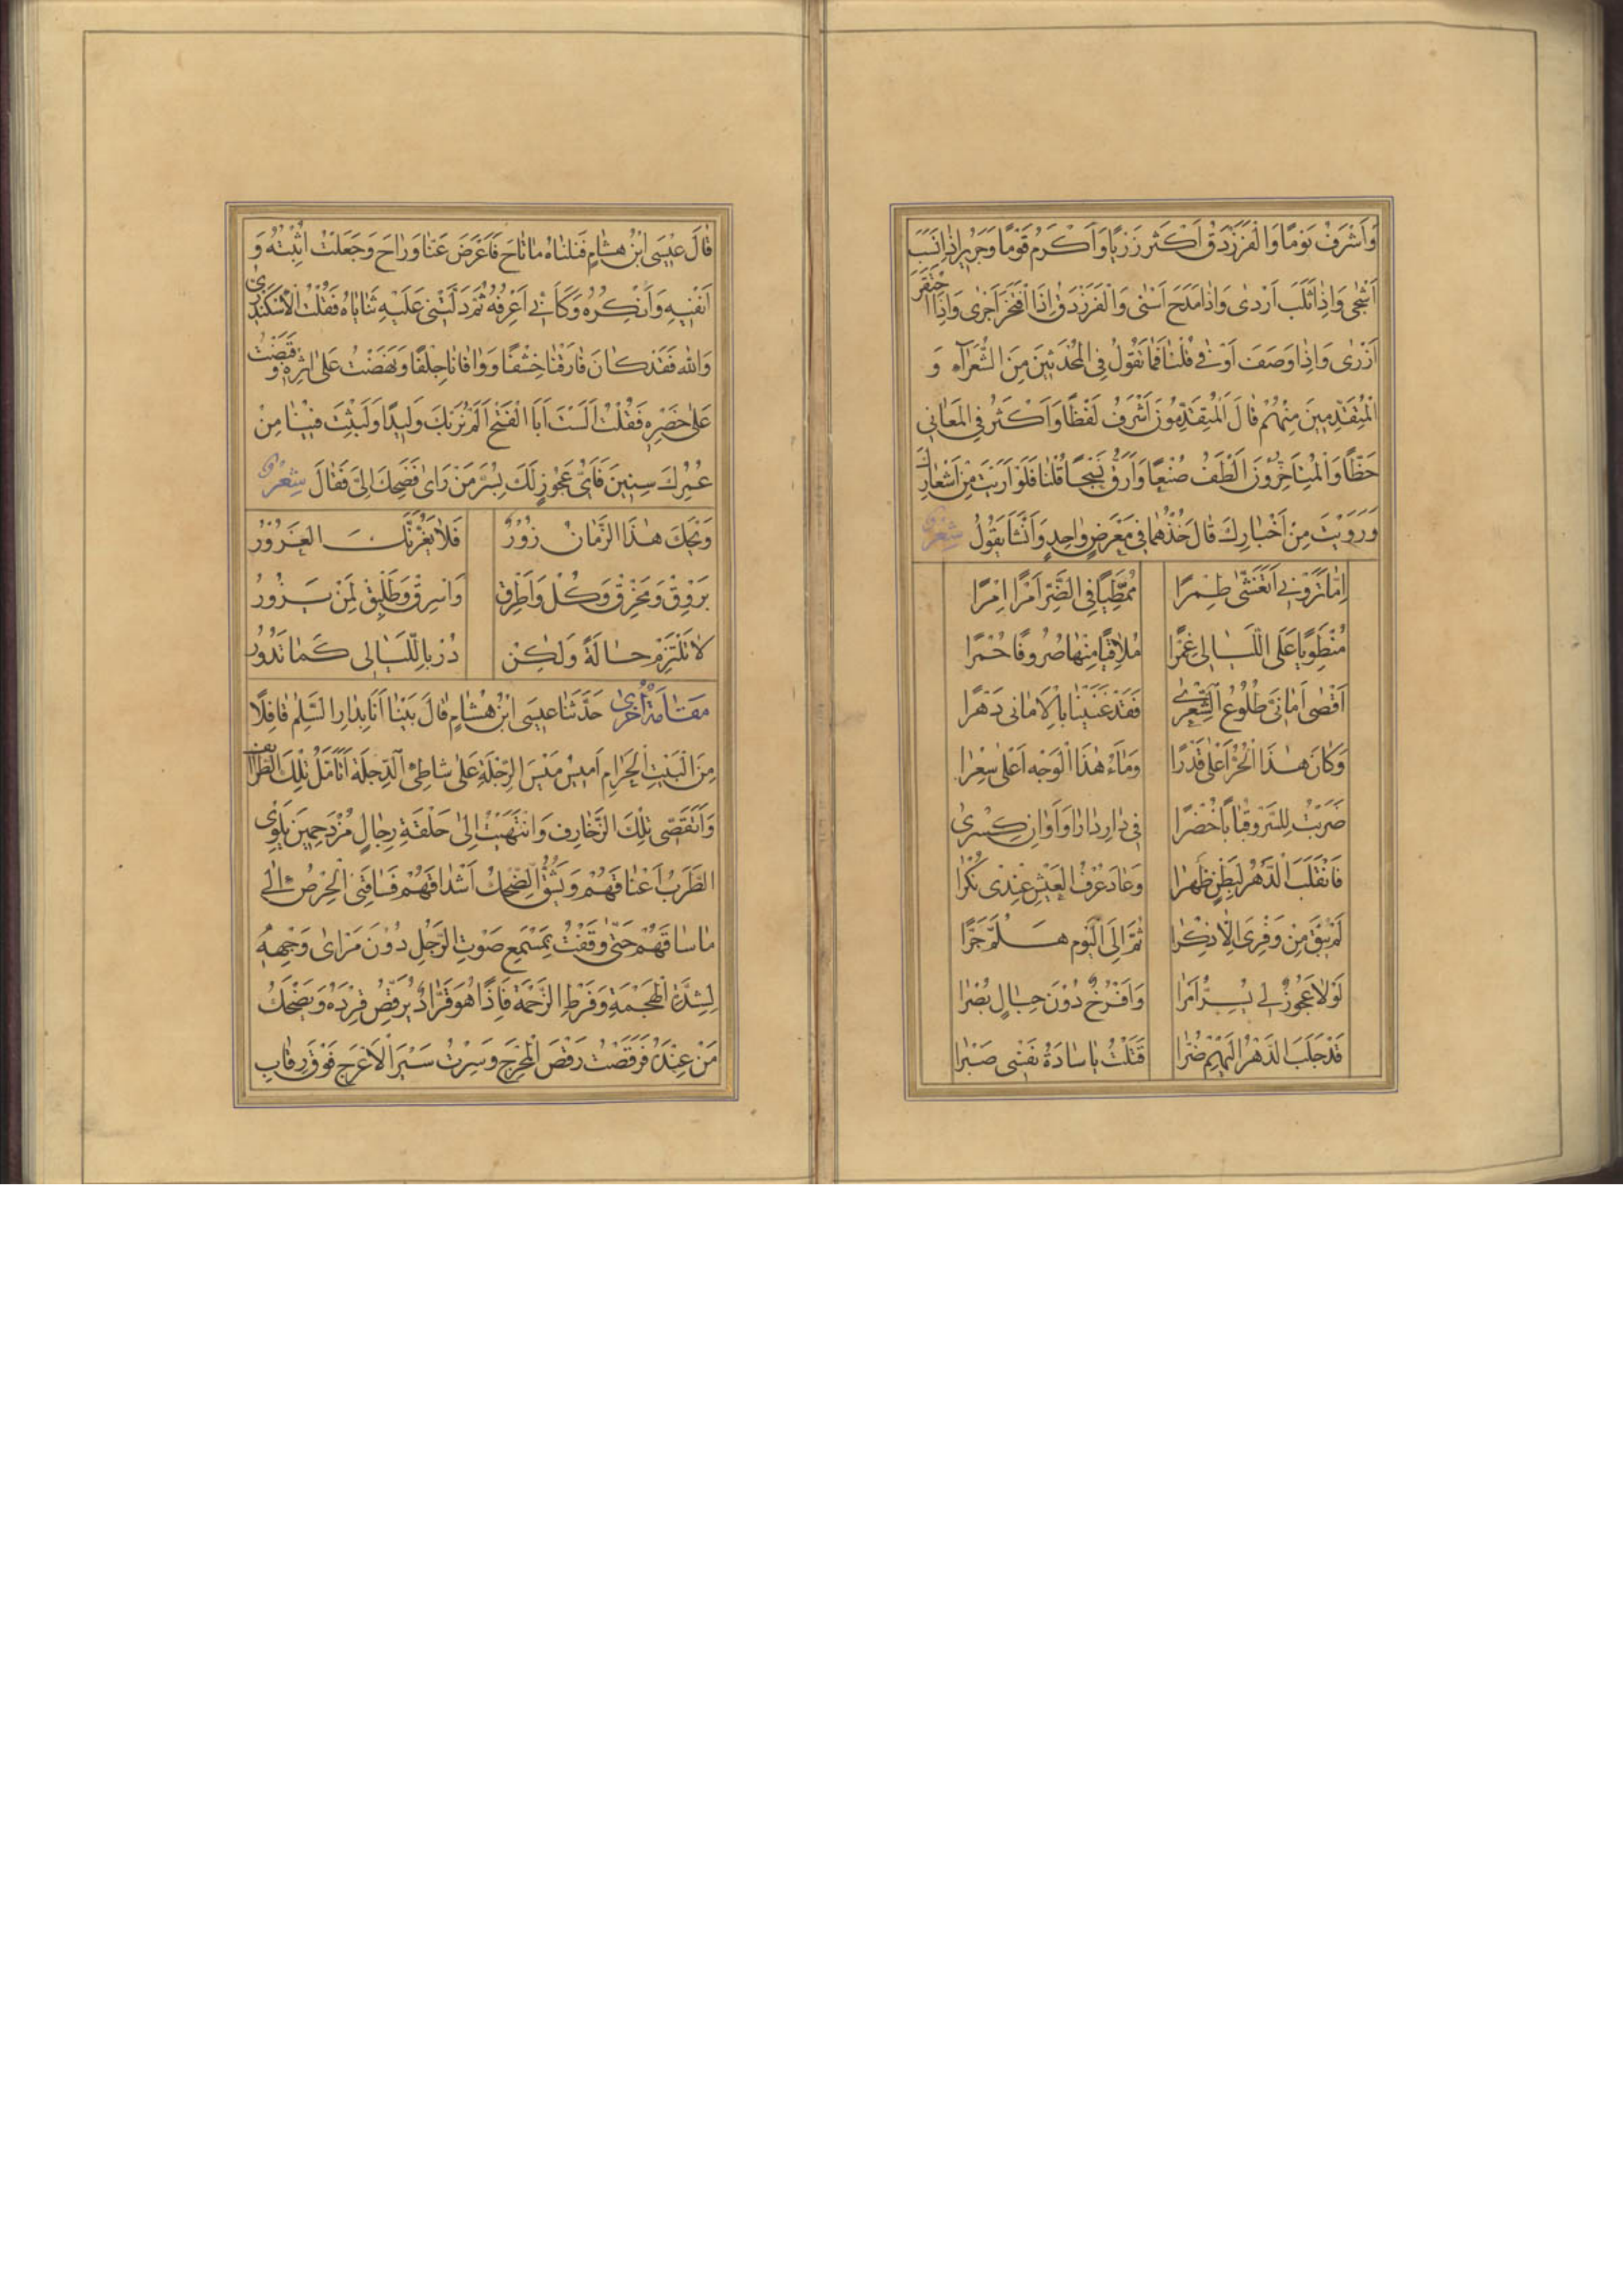 وَاَشْرَفُ يَوْمًا وَالْفَرَزْدَقُ اَكْثَر رَزِيًّا وَاَكْرَمُ قَوْمًا وَجَرِيرٌ اِذَا نَسَبَ
اَشْجٰى وَاِذَا ثَلَبَ اَرْدٰى وَاِذَا مَدَحَ اَسْنٰى وَالْفَرَزْدَقُ اِذَا افْتَخَرَ اَجْزٰى وَاِذَا احْتَقَرَ
اَزْرٰى وَاِذَا وَصَفَ اَوْفٰى قُلْنَا فَمَا تَقُولُ فِى الْمُحْدَثِينَ مِنَ الشُّعَرَآءِ وَ
الْمُتَقَدِّمِينَ مِنْهُمْ قَالَ الْمُتَقَدِّمُونَ اَشْرَفُ لَفْظًا وَاَكْثَرُ فِى الْمَعَانِى
حَظًّا وَالْمُتَاَخِّرُونَ اَلْطَفُ صُنْعًا وَاَرَقُّ نَسْجًا قُلْنَا فَلَوْ اَرَيْتَ مِنْ اَشْعَارِكَ
وَرَوَيْتَ مِنْ اَخْبَارِكَ قَالَ خُذْهُمَا فِى مَعْرَضٍ وَاحِدٍ وَاَنْشَأَ يَقُولُ شِعْرٌ
اِمَّا تَرَوْنِى اَتَغَشّٰى طِمْرًا مُمْتَطِيًا فِى الضَّرِّ اَمْرًا اِمْرًا
مُنْطَوِيًا عَلَى اللَّيَالِى غِمْرًا مُلَاقِيًا مِنْهَا صُرُوفًا حُمْرًا
اَقْصٰى اَمَانِىَّ طُلُوعُ الشِّعْرٰى فَقَدْ غَنِينَا بِالْاَمَانِى دَهْرًا
وَكَانَ هٰذَا الْحُرُّ اَعْلٰى قَدْرًا وَمَاءُ هٰذَا الْوَجْهِ اَعْلٰى سِعْرًا
ضَرَبْتُ لِلسَّرْوِ قِبَابًا خُضْرًا فِى دَارِ دَارَا وَاَوَانِ كِسْرٰى
فَانْقَلَبَ الدَّهْرُ لِبَطْنٍ ظَهْرًا وَعَادَ عُرْفُ الْعَيْشِ عِنْدِى نُكْرًا
لَمْ يَبْقَ مِنْ وَفْرِىَ اِلَّا ذِكْرًا ثُمَّ اِلَى الْيَوْمِ هَلُمَّ جَرًّا
لَوْلَا عَجُوزٌ لِى بِسُرَّ مَرَا وَاَفْرُخٌ دُونَ جِبَالِ بُصْرٰا
قَدْ جَلَبَ الدَّهْرُ اِلَيْهِمْ ضُرًّا قَتَلْتُ يَا سَادَةُ نَفْسِى صَبْرًا
قَالَ عِيْسَى ابْنُ هِشَامٍ فَنَلْنَاهُ مَا تَاحَ فَاَعْرَضَ عَنَّا وَرَاحَ وَجَعَلْتُ اُثْبِتُهُ وَ
اَنْفِيهِ وَاُنْكِرُهُ وَكَاَنِّى اَعْرِفُهُ ثُمَّ دَلَّتْنِى عَلَيْهِ ثَنَايَاهُ فَقُلْتُ الْاِسْكَنْدَرِىُّ
وَاللهِ فَقَدْ كَانَ فَارَقَنَا خِشْفًا وَوَافَانَا جِلْفًا وَنَهَضْتُ عَلٰى اِثْرِهِ وَقَبَضْتُ
عَلٰى خَصْرِهِ فَقُلْتُ اَلَسْتَ اَبَا الْفَتْحِ اَلَمْ نُرَبِّكَ وَلِيدًا وَلَبِثْتَ فِيْنَا مِنْ
عُمُرِكَ سِنِينَ فَاَىُّ عَجُوزٍ لَكَ بِسُرَّ مَنْ رَاٰى فَضَحِكَ اِلَىَّ وَقَالَ شِعْرٌ
وَيْحَكَ هٰذَا الزَّمَانُ زُورٌ فَلَا يَغُرَّنَّكَ الْغَرُورُ
بَرْوِقْ وَمَخْرِقْ وَكُلْ وَاَطْرِقْ وَاسْرِقْ وَطَلْبِقْ لِمَنْ يَزُورُ
لَا تَلْتَزِمْ حَالَةً وَلٰكِنْ دُرْ بِاللَّيَالِى كَمَا تَدُورُ
مَقَامَةٌ اُخْرٰى حَدَّثَنَا عِيسَى ابْنُ هِشَامٍ قَالَ بَيْنَا اَنَا بِدَارِ السَّلَمِ قَافِلًا
مِنَ الْبَيْتِ الْحَرَامِ اَمِيسُ مَيْسَ الرِّجْلَةِ عَلٰى شَاطِئِ الدِّجْلَةِ اَتَاَمَّلُ تِلْكَ الطَّرَائِفَ
وَاَتَقَصّٰى تِلْكَ الزَّخَارِفَ وَانْتَهَيْتُ اِلٰى حَلْقَةِ رِجَالٍ مُزْدَحِمِينَ يَلْوِى
الطَّرَبُ اَعْنَاقَهُمْ وَيَشُقُّ الضَّحِكُ اَشْدَاقَهُمْ فَسَاقَنِى الْحِرْصُ اِلٰى
مَا سَاقَهُمْ حَتّٰى وَقَفْتُ بِمَسْمَعِ صَوْتِ الرَّجُلِ دُوْنَ مَرْاٰى وَجْهِهِ
لِشِدَّةِ الْهَجْمَةِ وَفَرْطِ الزَّحْمَةِ فَاِذَا هُوَ قَرَّادٌ يُرَقِّصُ قِرْدَهُ وَيَضْحَكُ
مَنْ عِنْدَهُ فَرَقَصْتُ رَقْصَ الْمُحَرَّجِ وَسِرْتُ سَيْرَ الْاَعْرَجِ فَوْقَ رِقَابِ